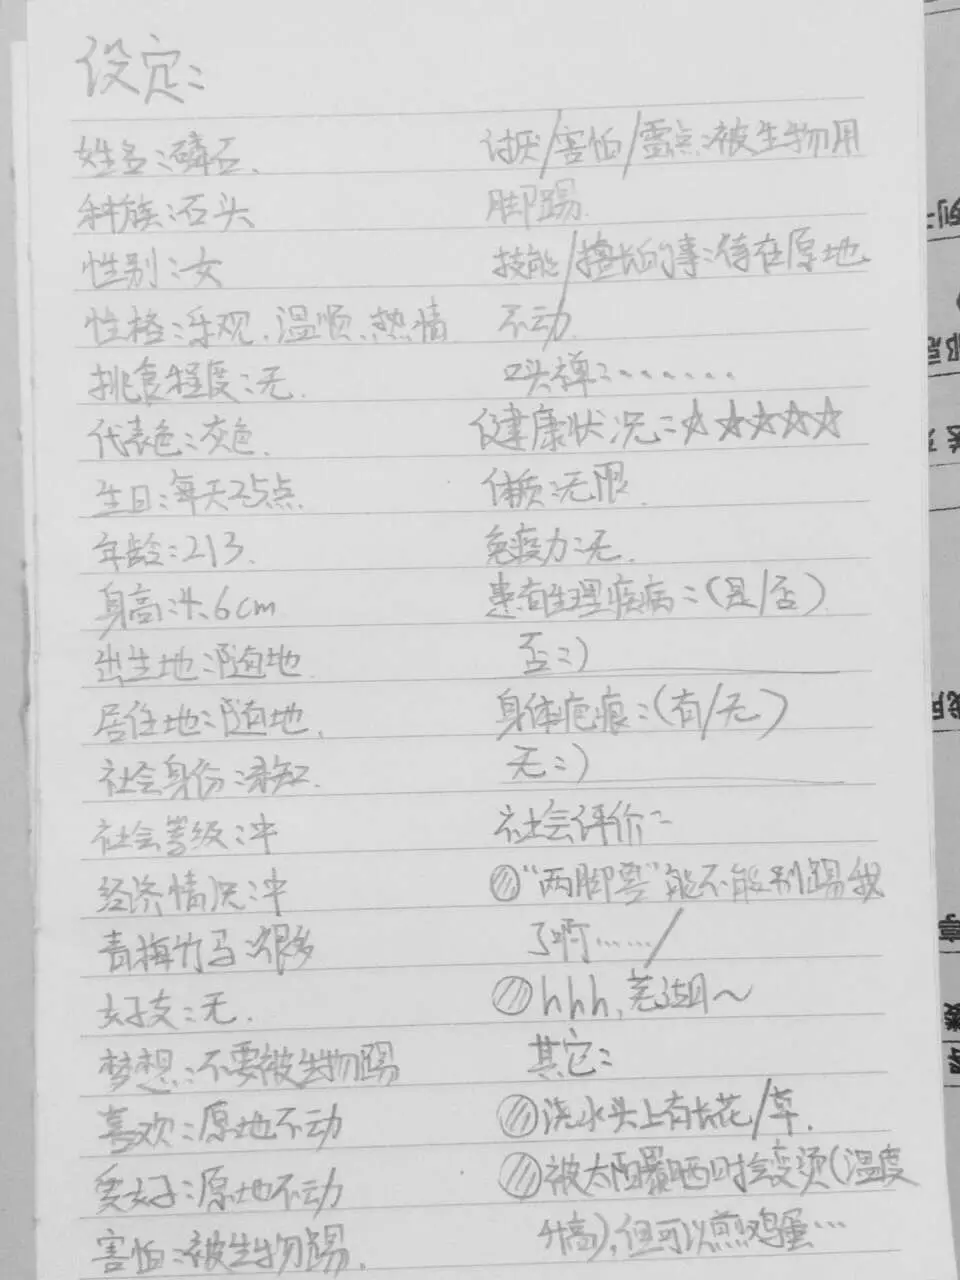 设定：
姓名：磷石.
种族：石头
性别：女
性格：乐观、温顺、热情
挑食程度：无.
代表色：灰色.
生日：每天25点.
年龄：213.
身高：1.6cm
出生地：随地
居住地：随地.
社会身份：未知.
社会等级：中
经济情况：中
青梅竹马：很多
好友：无.
梦想：不要被生物踢
喜欢：原地不动
爱好：原地不动
害怕：被生物踢.
讨厌/害怕/雷点：被生物用
脚踢.
技能/擅长的事：待在原地
不动.
口头禅：.......
健康状况：☆☆☆☆☆
体质：无限.
免疫力：无.
患有生理疾病：（是/否）
否：）
身体疤痕：（有/无）
无：）
社会评价：
“两脚兽”能不能别踢我
了啊……/
hhh，芜湖～
其它：
浇水头上有长花/草.
被太阳暴晒时会变烫（温度
升高），但可以煎鸡蛋…